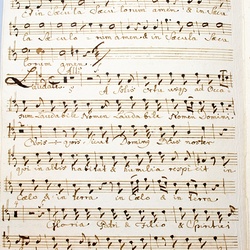 et in Saecula Saecu lorum amen & in Saecu
la Saeculo rum amen & in Saecula Saecu
lorum amen.
Laudate. 5 A Solis Ortu usq3 ad Occa
sum Laudabile Nomen Laudabile Nomen Domini
Dominus noster
qui in altis habitat & humilia respicit in
Caelo & in terra in Caelo & in terra
Gloria Patri & Filio & Spiritui